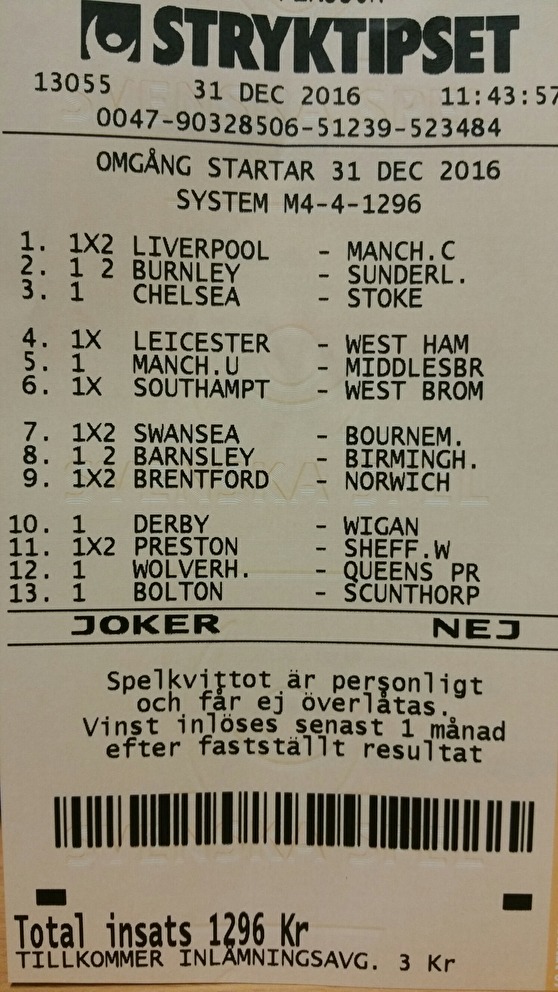 STRYKTIPSET
13055 31 DEC 2016 11:43:57
0047-90328506-51239-523484
OMGÅNG STARTAR 31 DEC 2016
SYSTEM M4-4-1296
1. 1X2 LIVERPOOL - MANCH.C
2. 1 2 BURNLEY - SUNDERL.
3. 1 CHELSEA - STOKE
4. 1X LEICESTER - WEST HAM
5. 1 MANCH.U - MIDDLESBR
6. 1X SOUTHAMPT - WEST BROM
7. 1X2 SWANSEA - BOURNEM.
8. 1 2 BARNSLEY - BIRMINGH.
9. 1X2 BRENTFORD - NORWICH
10. 1 DERBY - WIGAN
11. 1X2 PRESTON - SHEFF.W
12. 1 WOLVERH. - QUEENS PR
13. 1 BOLTON - SCUNTHORP
JOKER NEJ
Spelkvittot är personligt
och får ej överlåtas.
Vinst inlöses senast 1 månad
efter fastställt resultat
Total insats 1296 Kr
TILLKOMMER INLÄMNINGSAVG. 3 Kr